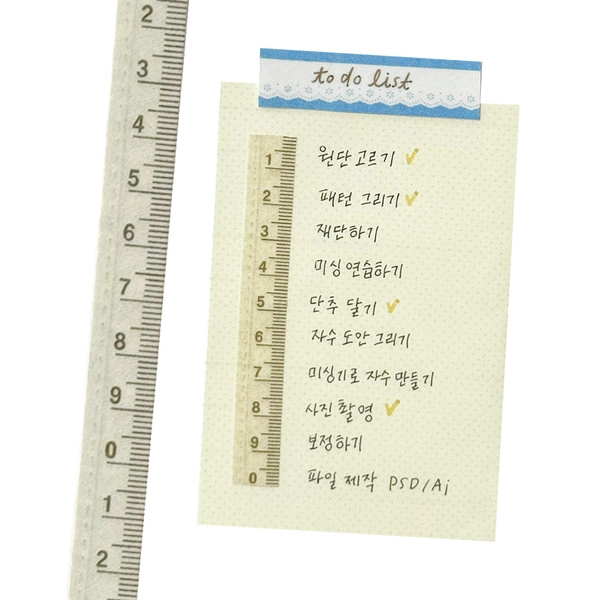 2
3
4
5
6
7
8
9
0
1
2
to do list
1 원단고르기
2 패턴 그리기
3 재단하기
4 미싱연습하기
5 단추 달기
6 자수 도안 그리기
7 미싱기로 자수 만들기
8 사진 촬영
9 보정하기
0 파일 제작 PSD/Ai